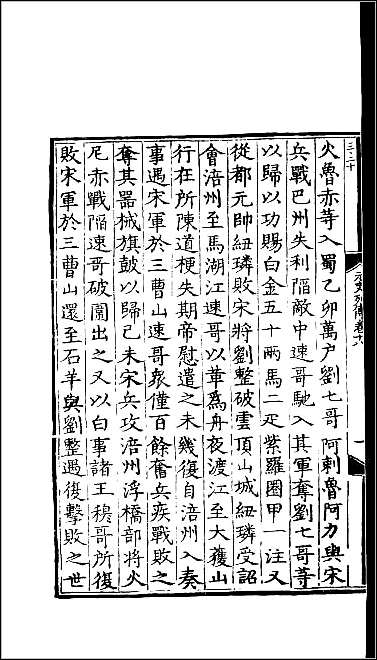 火魯赤等入蜀乙卯萬户劉七哥阿剌魯阿力與宋
兵戰巴州失利陷敵中速哥馳入其軍奪劉七哥等
以歸以功賜白金五十兩馬二疋紫羅圈甲一注又
從都元帥紐璘敗宋將劉整破雲頂山城紐璘受詔
會涪州至馬湖江速哥以革為舟夜渡江至大獲山
行在所陳道梗失期帝慰遣之未幾復自涪州入奏
事遇宋軍於三曹山速哥衆僅百餘奮兵疾戰敗之
奪其器械旗鼓以歸己未宋兵攻涪州浮橋部將火
尼赤戰陷速哥破圍出之又以白事諸王穆哥所復
敗宋軍於三曹山還至石羊與劉整遇復擊敗之世